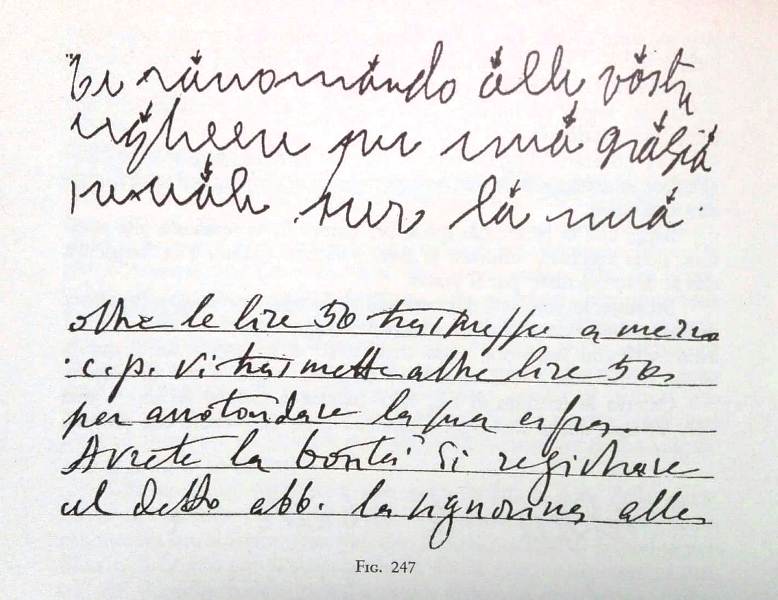 Vi raccomando alle vostre
preghiere per una grazia
per la mia.
oltre le lire 50 trasmesse a mezzo
c.p. vi trasmetto altre lire 50
per arrotondare la sua cifra.
Avrete la bontà di registrare
al detto abb. la signorina
FIG. 247